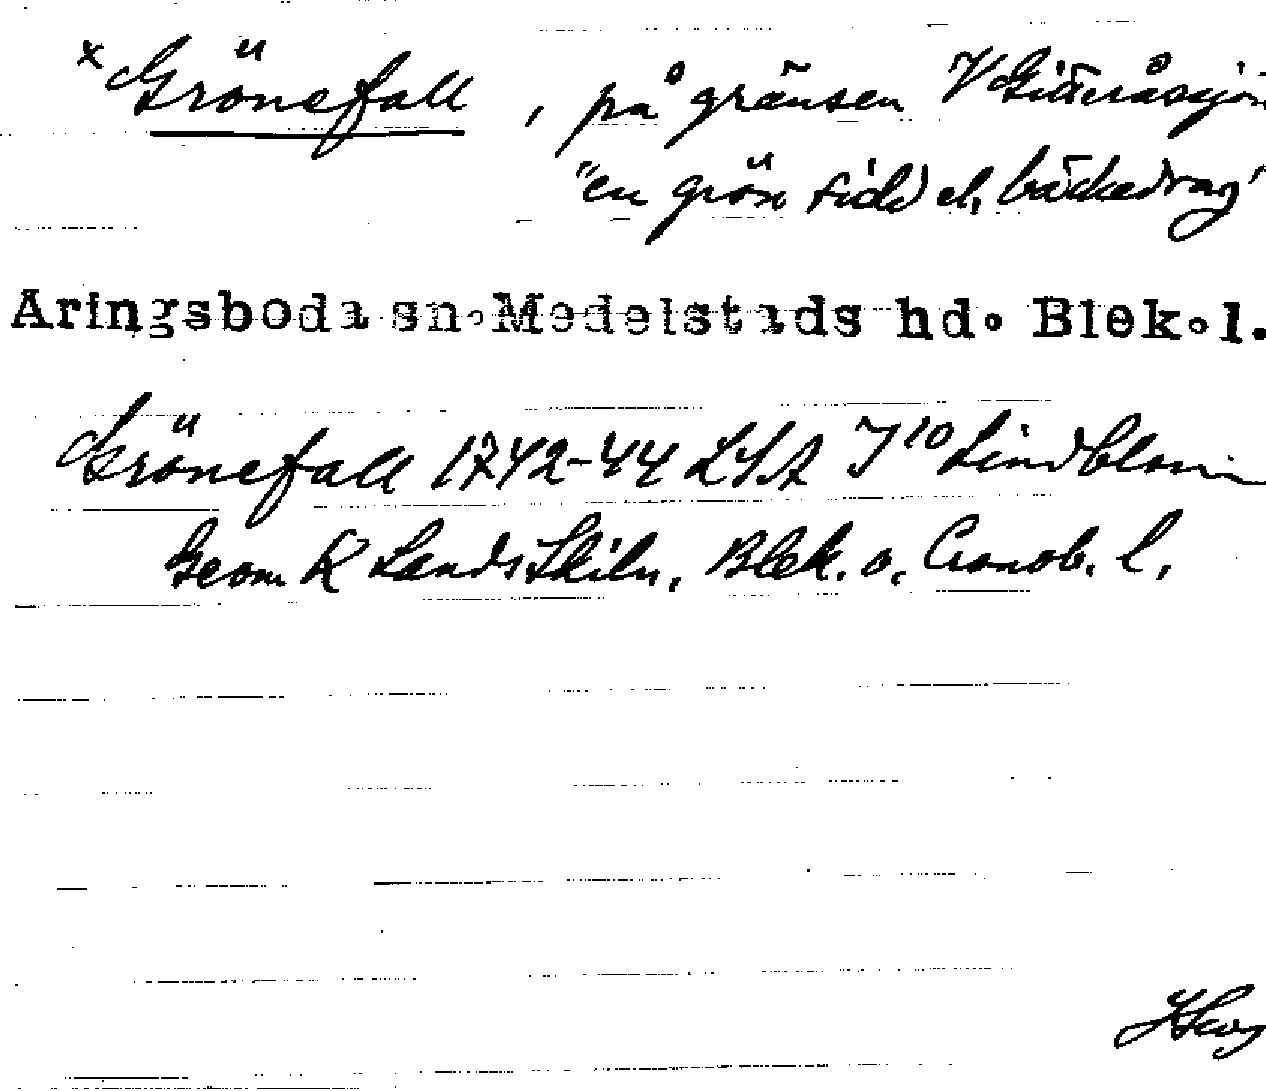 x Grönefall, på gränsen V
"en grön sidd el. bäckedrag"
Aringsboda sn. Medelstads hd. Blek. l.
Grönefall 1742-44 LSA J 10 Lindblom
Geom K Lands Skiln. Blek. o. Cronob. l.